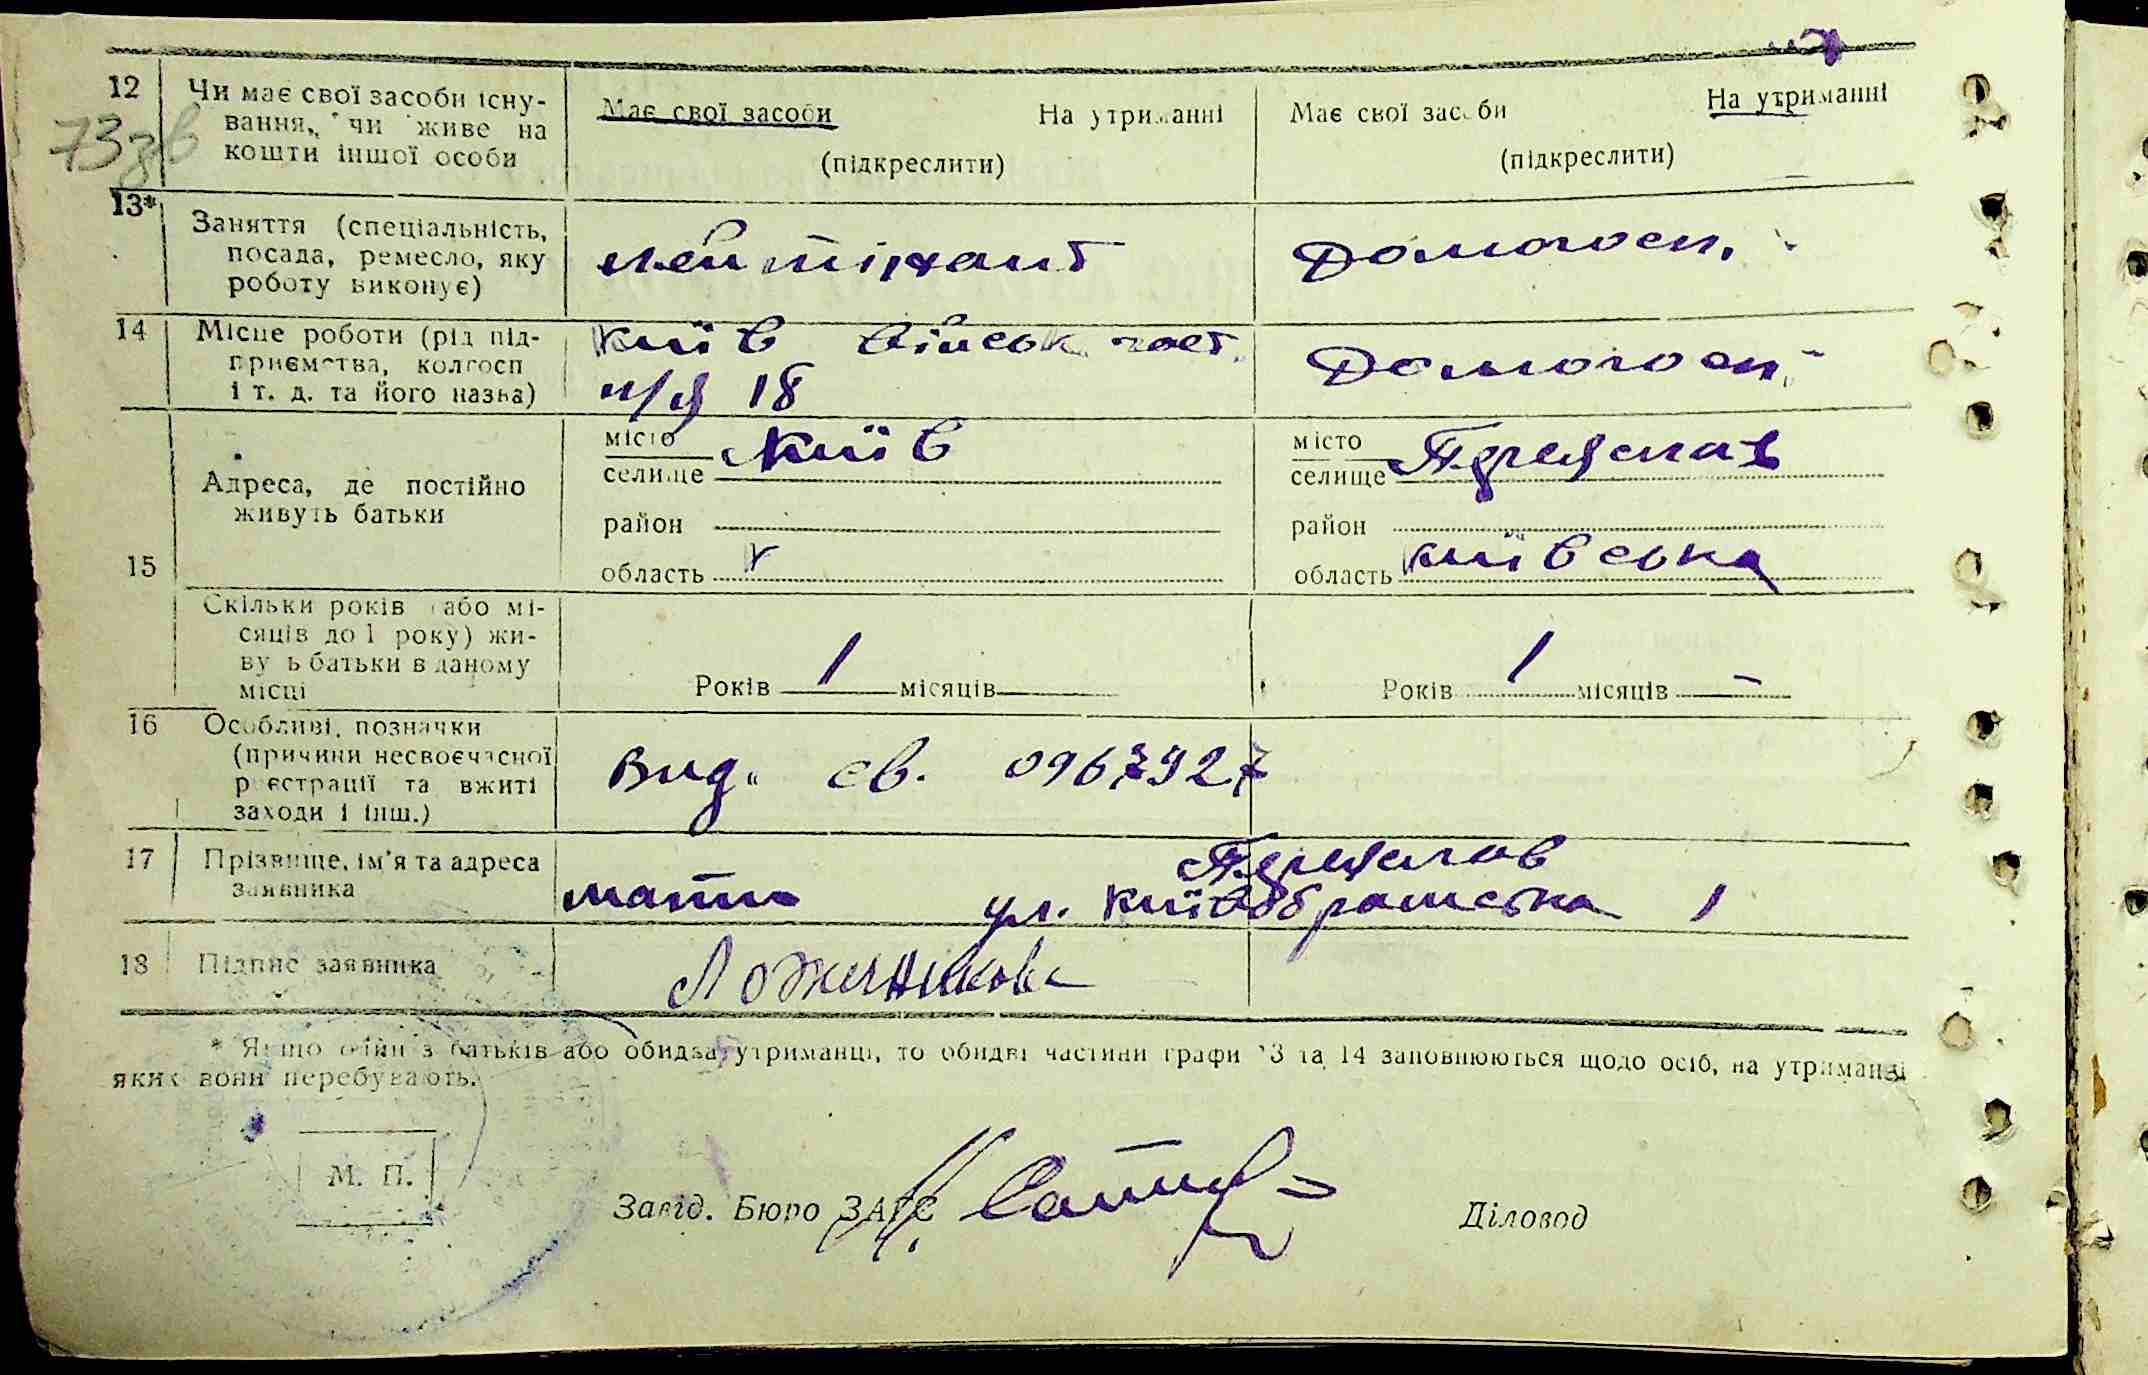 12 Чи має свої засоби існу-
вання, чи живе на
кошти іншої особи
Має свої засоби На утриманні
(підкреслити)
Має свої засоби На утриманні
(підкреслити)
13* Заняття (спеціальність,
посада, ремесло, яку
роботу виконує)
лейтінант
Домогосп.
14 Місце роботи (рід під-
приємства, колгосп
і т. д. та його назва)
Київ військ. част.
п/я 18
Домогосп.
15 Адреса, де постійно
живуть батьки
місто
селище Київ
район
область
місто
селище Переяслав
район
область Київська
Скільки років (або мі-
сяців до 1 року) жи-
вуть батьки в даному
місці
Років 1 місяців
Років 1 місяців –
16 Особливі позначки
(причини несвоєчасної
реєстрації та вжиті
заходи і інш.)
Вид. св. 0967927
17 Прізвище, ім'я та адреса
заявника
мати Переяслав
ул. Київобрамська 1
18 Підпис заявника
Ложечникова
* Якщо один з батьків або обидва утриманці, то обидві частини графи 13 та 14 заповнюються щодо осіб, на утриманні
яких вони перебувають.
М. П.
Завід. Бюро ЗАГС
Діловод